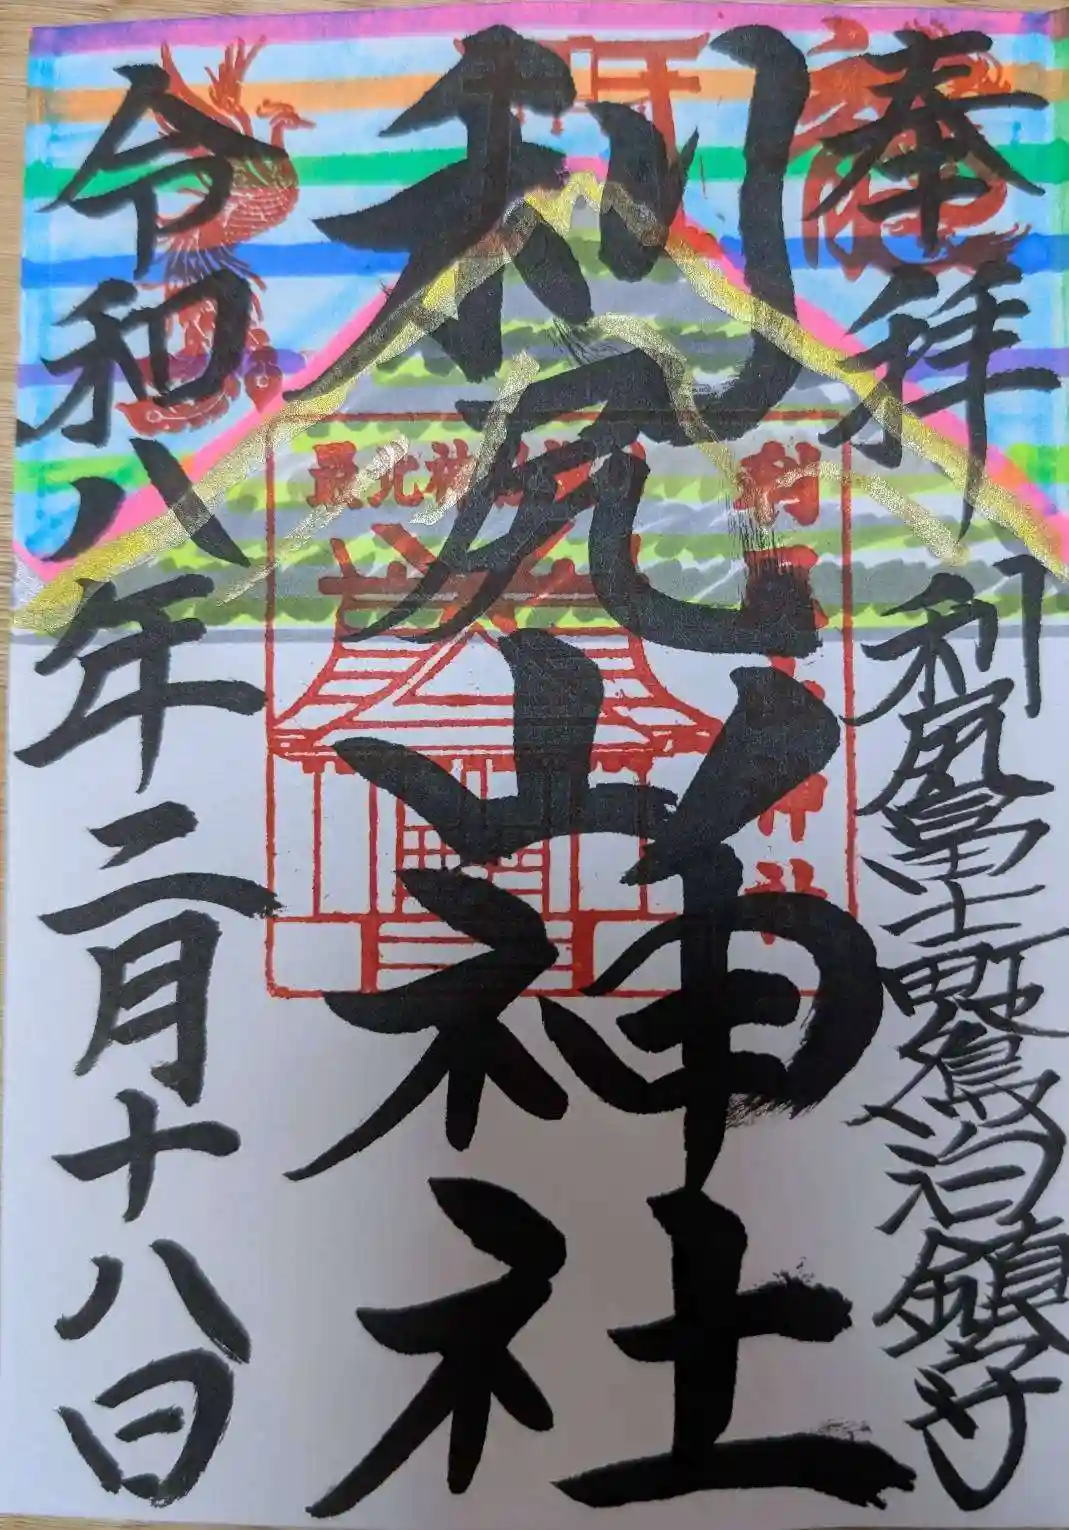 奉拝
利尻富士町鴛泊鎮守
利尻山神社
令和八年二月十八日
利尻山神社
最北神